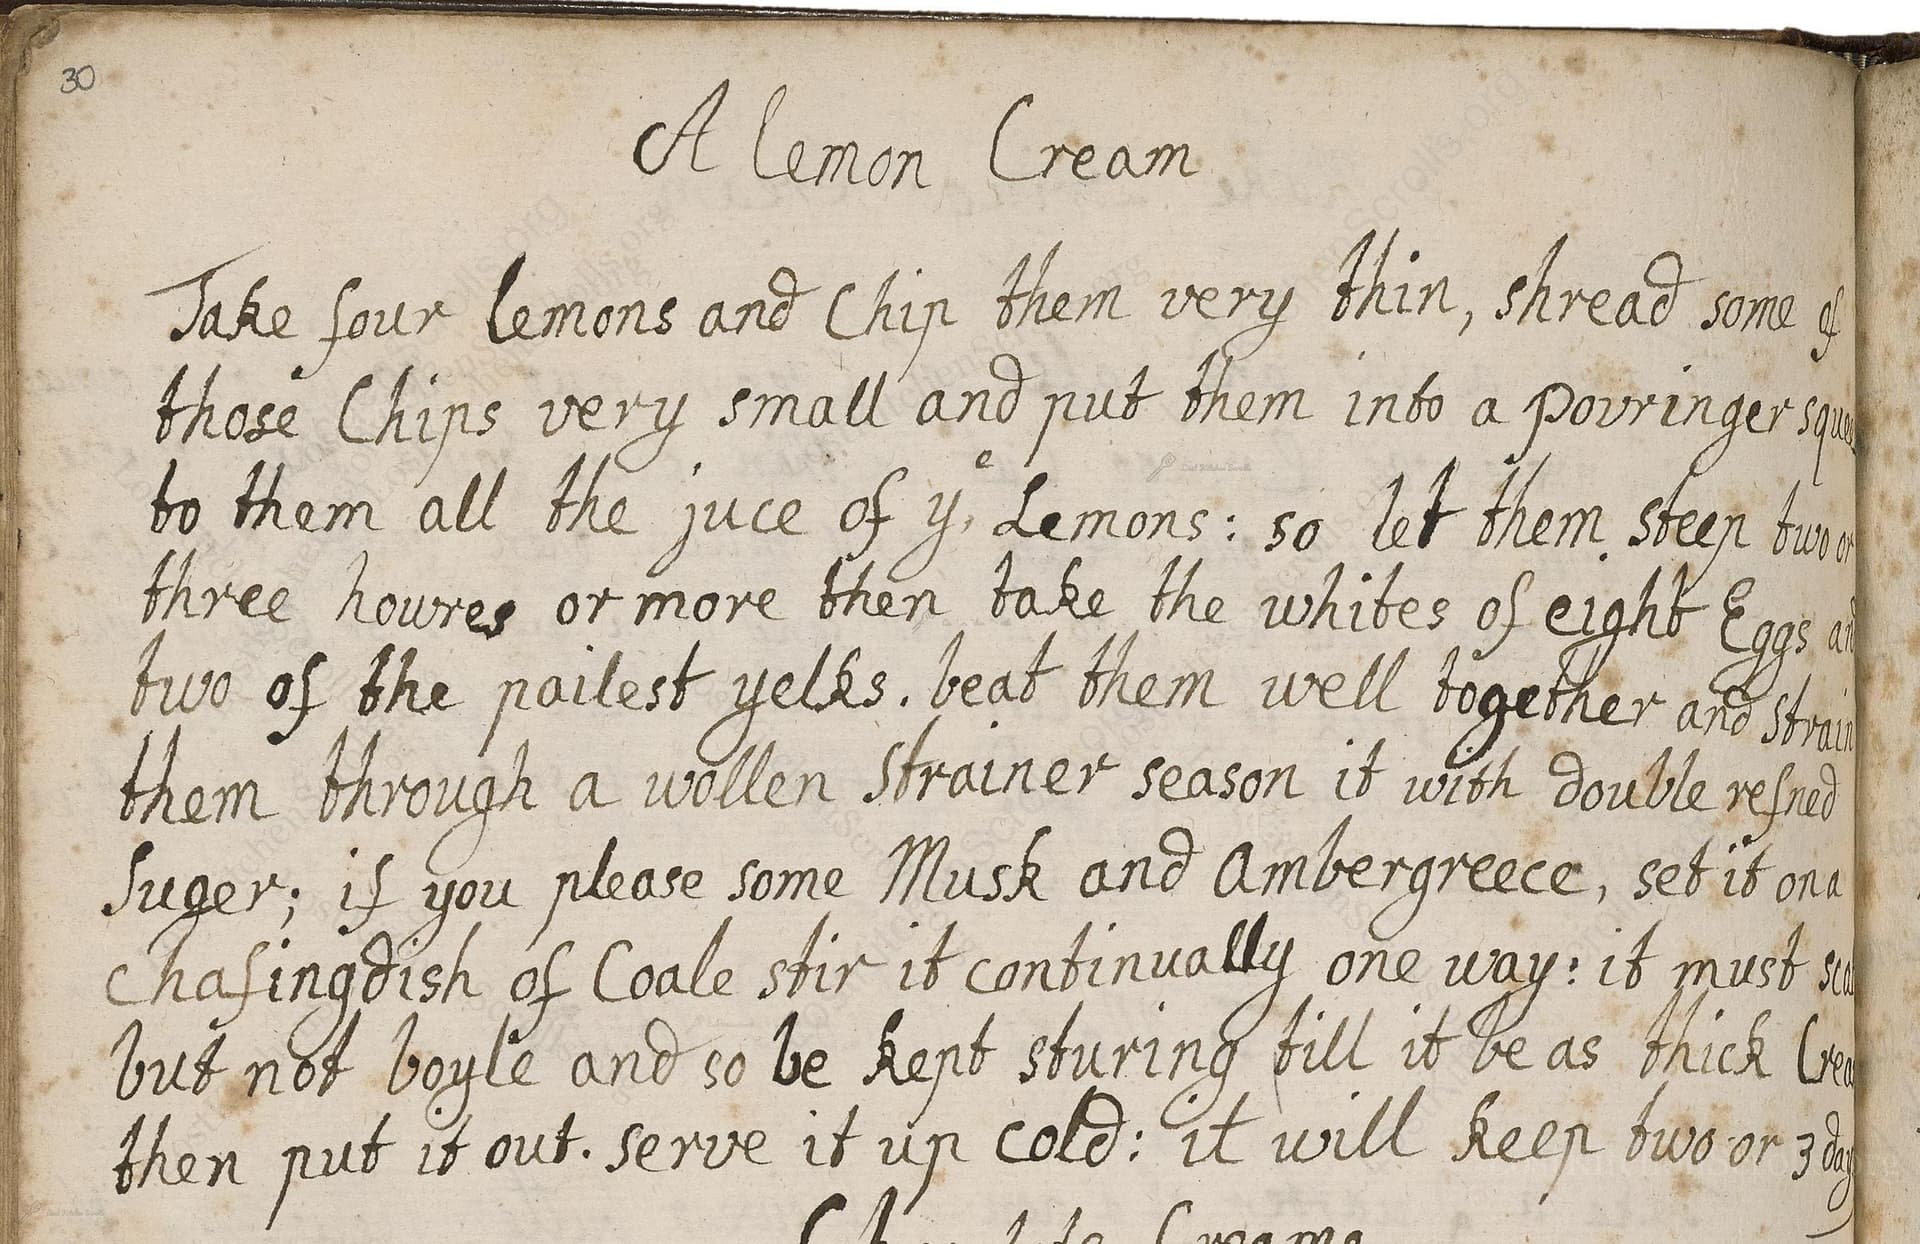 30
A lemon Cream
Take four lemons and Chip them very thin, shread some of
those Chips very small and put them into a Povringer
to them all the juce of yᵉ Lemons: so let them steep two or
three howres or more then take the whites of eight Eggs and
two of the pailest yelks. beat them well together and strain
them through a wollen strainer season it with double refned
Suger; if you please some Musk and Ambergreece, set it on a
chafingdish of Coale stir it continually one way: it must
but not boyle and so be kept sturing till it be as thick
then put it out. serve it up cold: it will keep two or 3 day